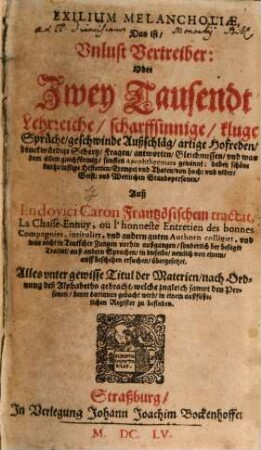 EXILIUM MELANCHOLIÆ,
Das ist/
Vnlust Vertreiber:
Oder
Zwey Tausendt
Lehrreiche/ scharffsinnige/ kluge
Sprüche/ geschwinde Außschläg/ artige Hofreden/
denckwürdige Schertz/ Fragen/ antworten/ Gleichnussen/ und was
dem allem gleichförmig/ sonsten Apophthegmata genannt: dabey schöne
Geist: und Weltlichen Standspersonen/
Auß
Ludovici Caron Frantzösischem tractat,
La Chasse-Ennuy, ou l'honneste Entretien des bonnes
Compagnies, intitulirt, und andern guten Authorn colligirt, und
Tractat/ auß andern Sprachen/ in dieselbe/ newlich von einem/
auff beschehen ersuchen/ übergesetzet.
Alles unter gewisse Titul der Materien/ nach Ord-
nung deß Alphabeths gebracht/ welche zugleich sampt den Per-
sonen/ deren darinnen gedacht wird/ in einem außführ-
lichen Register zu befinden.
Straßburg/
In Verlegung Johann Joachim Bockenhoffer
M. DC. LV.